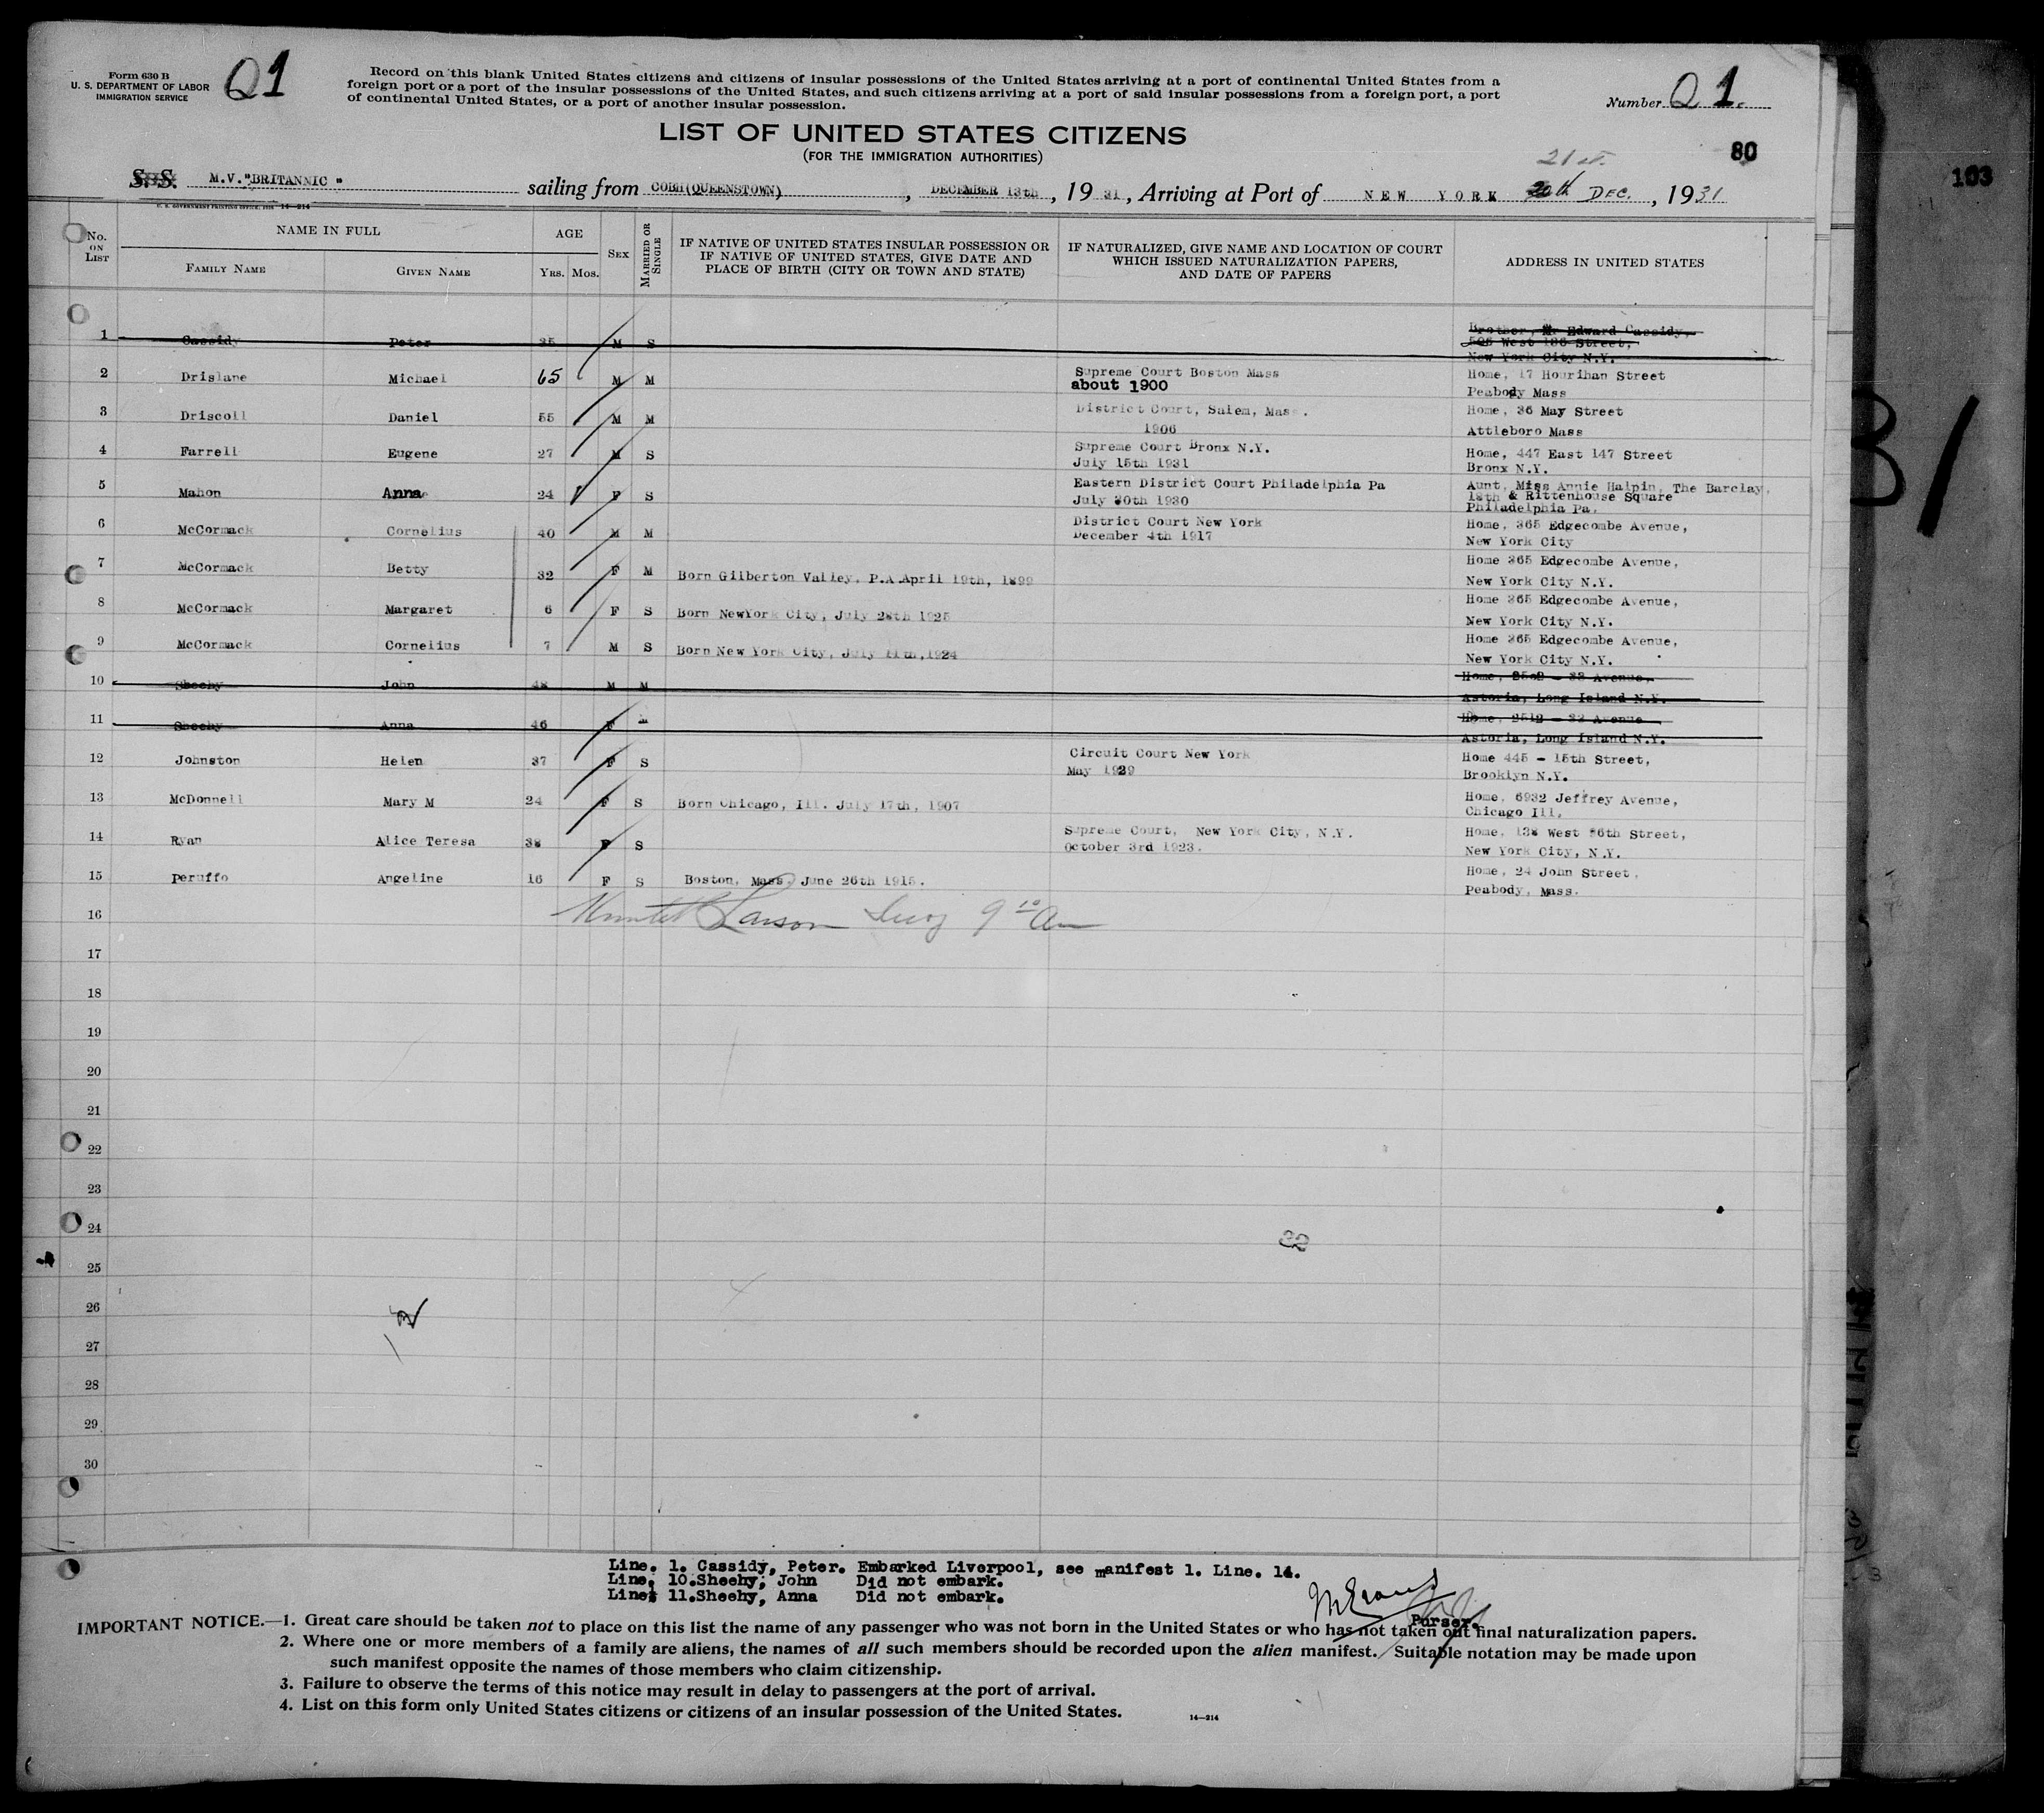 Form 630 B
U. S. DEPARTMENT OF LABOR
IMMIGRATION SERVICE
Q1
Record on this blank United States citizens and citizens of insular possessions of the United States arriving at a port of continental United States from a
foreign port or a port of the insular possessions of the United States, and such citizens arriving at a port of said insular possessions from a foreign port, a port
of continental United States, or a port of another insular possession.
Number Q 1.
LIST OF UNITED STATES CITIZENS
(FOR THE IMMIGRATION AUTHORITIES)
80
103
21st
S. S. M.V."BRITANNIC" sailing from COBH(QUEENSTOWN), DECEMBER 13th, 19 31, Arriving at Port of NEW YORK 20th DEC., 1931
No. ON LIST
NAME IN FULL
FAMILY NAME GIVEN NAME
AGE
YRS. MOS.
SEX
MARRIED OR SINGLE
IF NATIVE OF UNITED STATES INSULAR POSSESSION OR
IF NATIVE OF UNITED STATES, GIVE DATE AND
PLACE OF BIRTH (CITY OR TOWN AND STATE)
IF NATURALIZED, GIVE NAME AND LOCATION OF COURT
WHICH ISSUED NATURALIZATION PAPERS,
AND DATE OF PAPERS
ADDRESS IN UNITED STATES
1 Cassidy Peter 35 M S Brother, Mr Edward Cassidy,
West 186 Street,
New York City N.Y.
2 Drislane Michael 65 M M Supreme Court Boston Mass Home, 17 Hourihan Street
about 1900 Peabody Mass
3 Driscoll Daniel 55 M M District Court, Salem, Mass. Home, 36 May Street
1906 Attleboro Mass
4 Farrell Eugene 27 M S Supreme Court Bronx N.Y. Home, 447 East 147 Street
July 15th 1931 Bronx N.Y.
5 Mahon Anna 24 F S Eastern District Court Philadelphia Pa Aunt, Miss Annie Halpin, The Barclay,
July 30th 1930 18th & Rittenhouse Square
Philadelphia Pa.
6 McCormack Cornelius 40 M M District Court New York Home, 365 Edgecombe Avenue,
December 4th 1917 New York City
7 McCormack Betty 32 F M Born Gilberton Valley. P.A April 19th, 1899 Home 365 Edgecombe Avenue,
New York City N.Y.
8 McCormack Margaret 6 F S Born NewYork City, July 28th 1925 Home 365 Edgecombe Avenue,
New York City N.Y.
9 McCormack Cornelius 7 M S Born New York City, July 11th,1924 Home 365 Edgecombe Avenue,
New York City N.Y.
10 Sheehy John 48 M M Home, 2512 - 33 Avenue,
Astoria, Long Island N.Y.
11 Sheehy Anna 46 F M Home, 2512 - 33 Avenue
Astoria, Long Island N.Y.
12 Johnston Helen 37 F S Circuit Court New York Home 445 - 15th Street,
May 1929 Brooklyn N.Y.
13 McDonnell Mary M 24 F S Born Chicago, Ill. July 17th, 1907 Home, 6932 Jeffrey Avenue,
Chicago Ill.
14 Ryan Alice Teresa 38 F S Supreme Court, New York City, N.Y. Home, 138 West 86th Street,
October 3rd 1923. New York City, N.Y.
15 Peruffo Angeline 16 F S Boston, Mass. June 26th 1915. Home, 24 John Street,
Peabody, Mass.
16 Larson 9 10 Am
17
18
19
20
21
22
23
24
25
26
27
28
29
30
Line. 1. Cassidy, Peter. Embarked Liverpool, see manifest 1. Line. 14.
Line. 10.Sheehy, John Did not embark.
Line. 11.Sheehy, Anna Did not embark.
Purser.
IMPORTANT NOTICE.—1. Great care should be taken not to place on this list the name of any passenger who was not born in the United States or who has not taken out final naturalization papers.
2. Where one or more members of a family are aliens, the names of all such members should be recorded upon the alien manifest. Suitable notation may be made upon
such manifest opposite the names of those members who claim citizenship.
3. Failure to observe the terms of this notice may result in delay to passengers at the port of arrival.
4. List on this form only United States citizens or citizens of an insular possession of the United States.
14—214